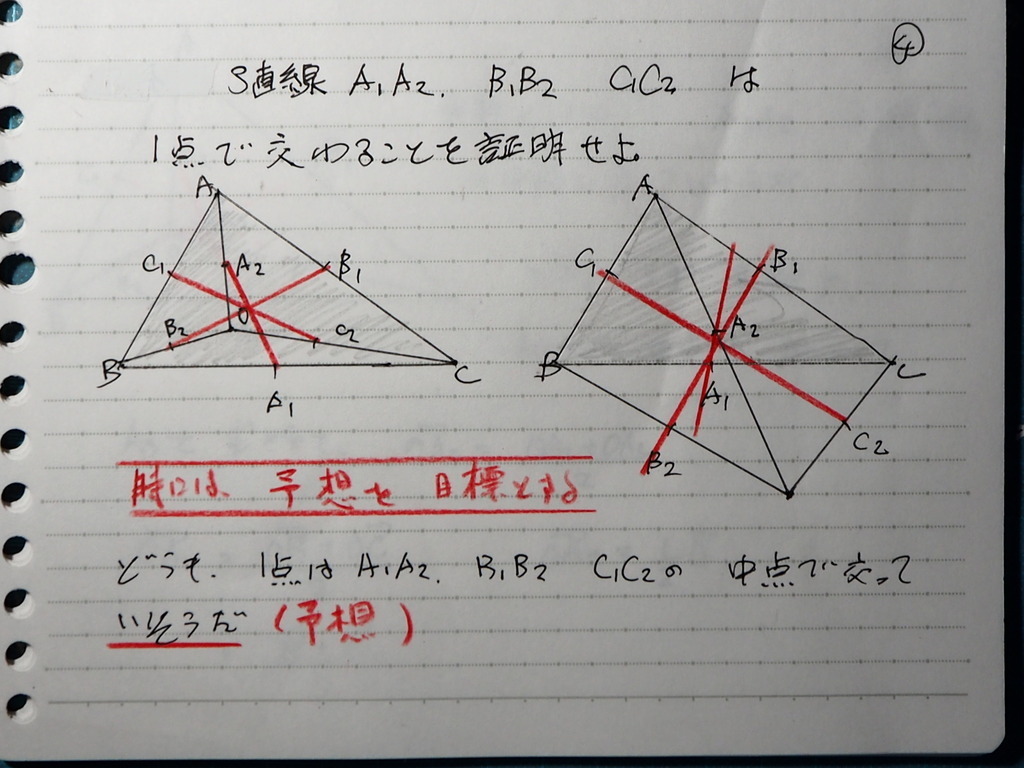 ④
3直線 A₁A₂. B₁B₂ C₁C₂ は
1点で交わることを証明せよ。
A
C₁ A₂ B₁
B₂ O C₂
B C
A₁
A
C₁ B₁
A₂
B C
A₁
C₂
B₂
時には 予想を 目標とする
どうも. 1点は A₁A₂. B₁B₂ C₁C₂の 中点で交って
いそうだ (予想)